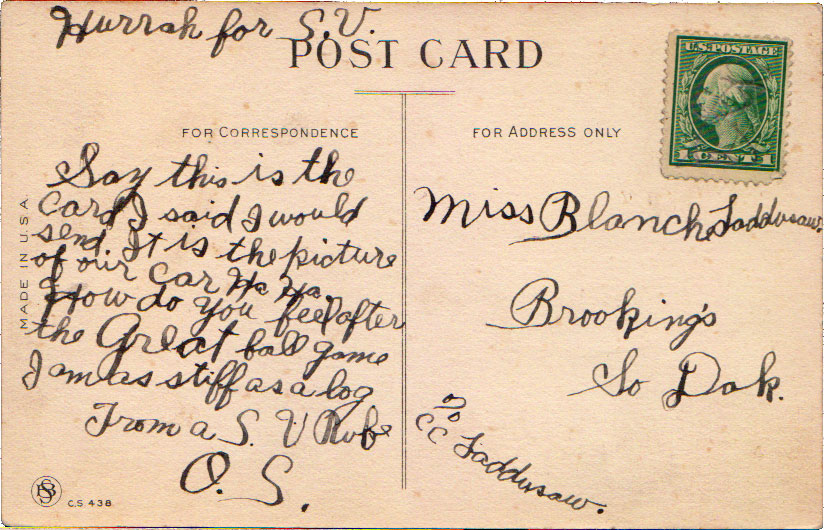 Hurrah for S.V.
POST CARD
U.S. POSTAGE
1 CENT 1
FOR CORRESPONDENCE
FOR ADDRESS ONLY
MADE IN U.S.A.
Say this is the
Card I said I would
send. It is the picture
of our Car Ha Ha.
How do you feel after
the Great ball game
I am as stiff as a log
From a S. V Rube
O. S.
Miss Blanche Laddusaw.
Brooking's
So Dak.
c/o
CC Laddusaw.
BS
C.S 438